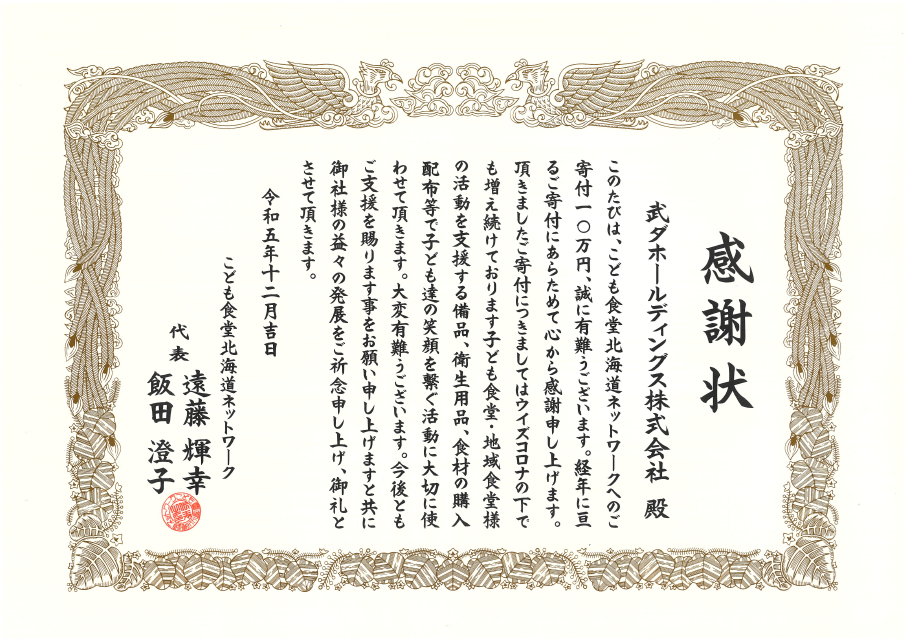 感謝状
武ダホールディングス株式会社 殿
このたびは、こども食堂北海道ネットワークへのご
寄付一〇万円、誠に有難うございます。経年に亘
るご寄付にあらためて心から感謝申し上げます。
頂きましたご寄付につきましてはウイズコロナの下で
も増え続けております子ども食堂・地域食堂様
の活動を支援する備品、衛生用品、食材の購入
配布等で子ども達の笑顔を繋ぐ活動に大切に使
わせて頂きます。大変有難うございます。今後とも
ご支援を賜ります事をお願い申し上げますと共に
御社様の益々の発展をご祈念申し上げ、御礼と
させて頂きます。
令和五年十二月吉日
こども食堂北海道ネットワーク
代表 遠藤 輝幸
飯田 澄子